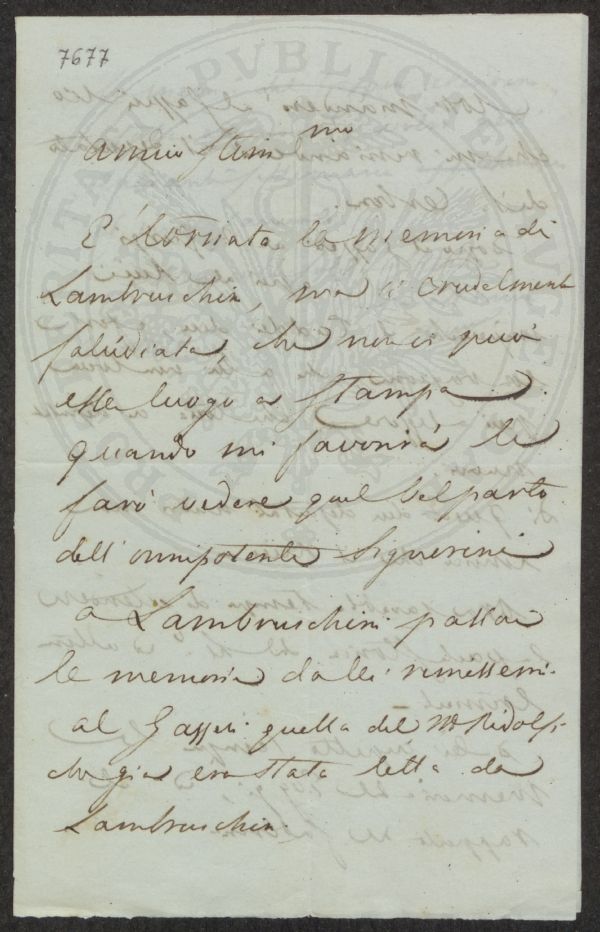 7677
Amico Stim mo
E' tornata la memoria di
Lambruschini, ma sì crudelmente
falcidiata, che non ci può
esser luogo a Stampa.
quando mi favorirà le
farò vedere quel bel parto
dell'onnipotente Signorini
a Lambruschini passai
le memorie da lei rimessemi.
al Gazzeri quella del M Ridolfi
che già era stata letta da
Lambruschini